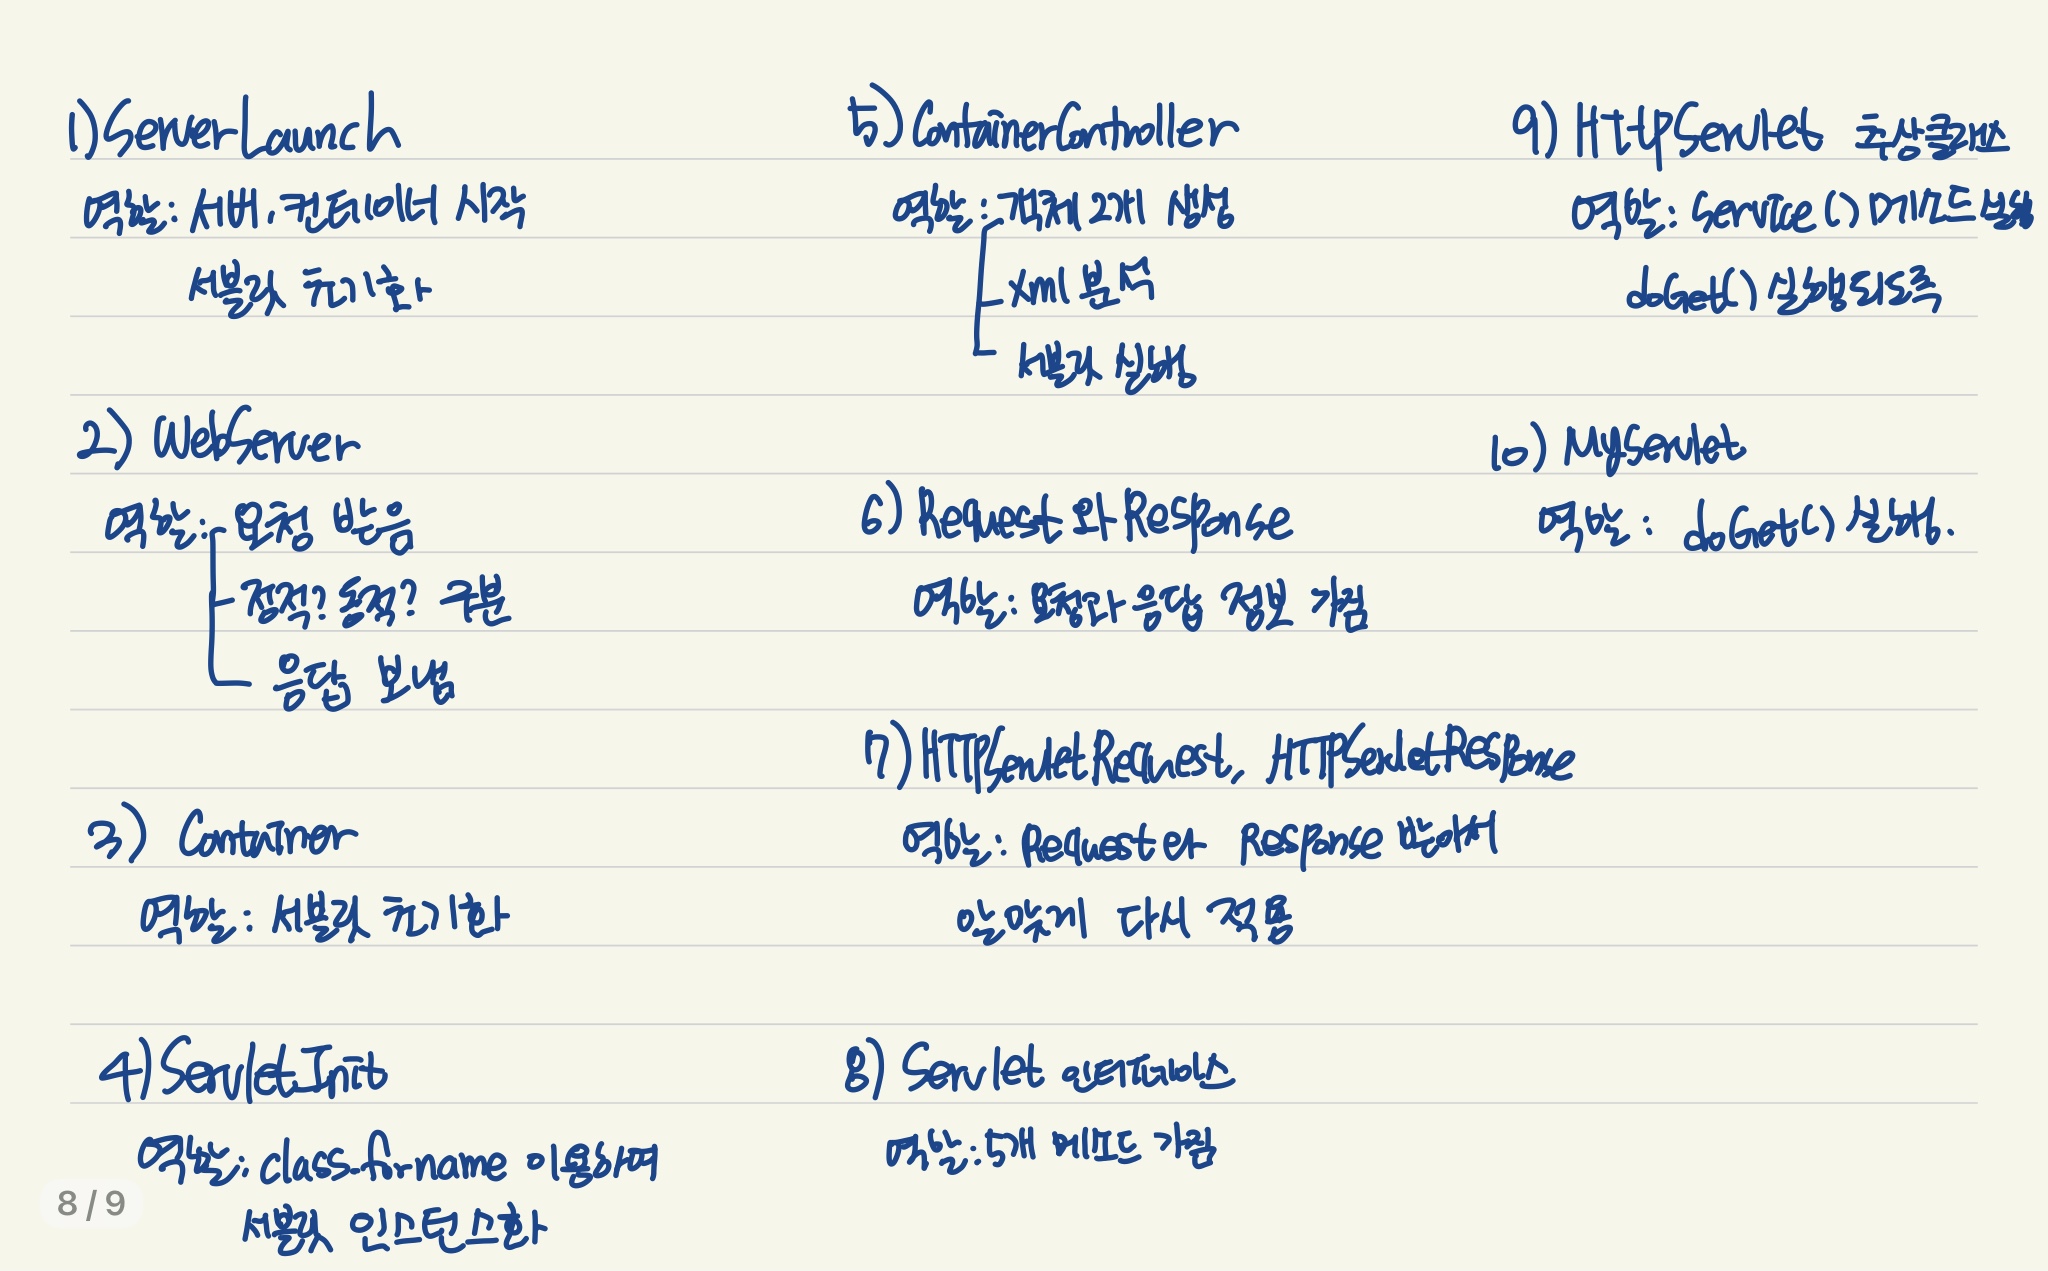 1) ServerLaunch
역할: 서버, 컨테이너 시작
서블릿 초기화
2) WebServer
역할: 요청 받음
정적? 동적? 구분
응답 보냄
3) Container
역할: 서블릿 초기화
4) ServletInit
역할: class.forname 이용하여
서블릿 인스턴스화
5) ContainerController
역할: 객체 2개 생성
xml 분석
서블릿 실행
6) Request 와 Response
역할: 요청과 응답 정보 가짐
7) HTTPServletRequest, HTTPServletResponse
역할: Request와 Response 받아서
알맞게 다시 적용
8) Servlet 인터페이스
역할: 5개 메소드 가짐
9) HttpServlet 추상클래스
역할: Service() 메소드 실행
doGet() 실행되도록
10) MyServlet
역할: doGet() 실행.
8 / 9